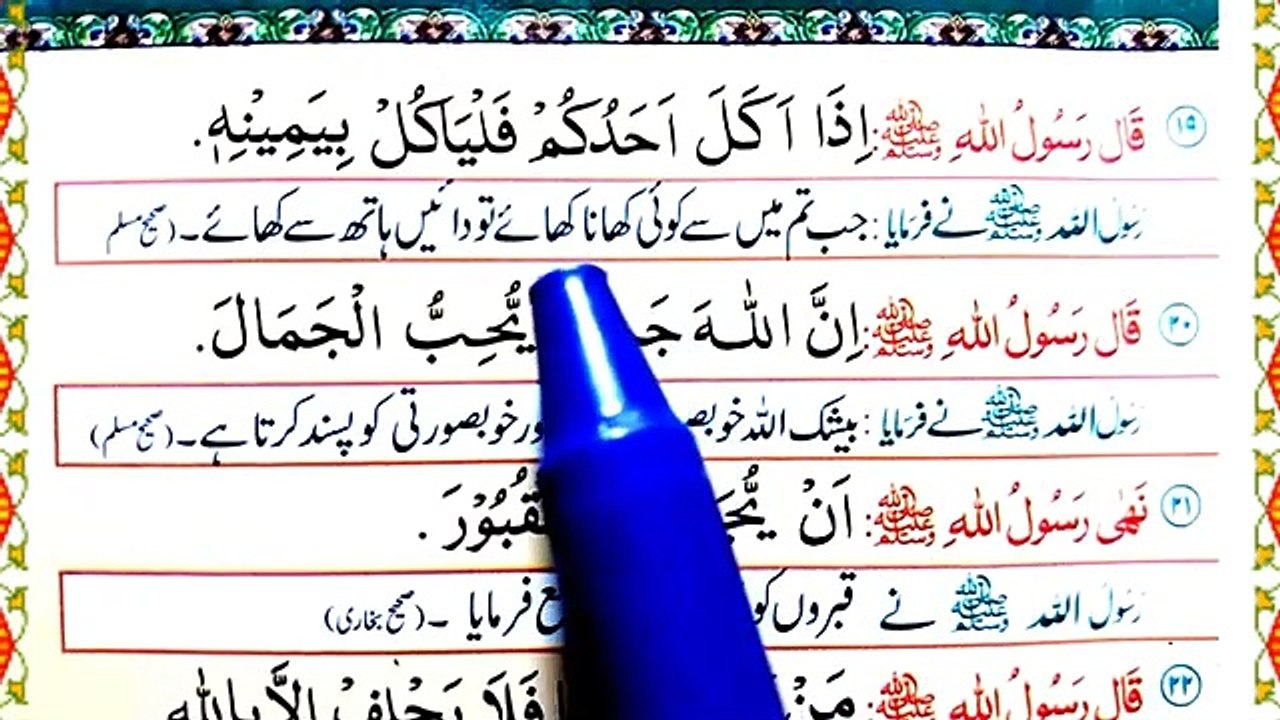 ١٩ قَالَ رَسُولُ اللهِ ﷺ: اِذَا اَكَلَ اَحَدُكُمْ فَلْيَاكُلْ بِيَمِيْنِهٖ.
رَسُولُ اللہ ﷺ نے فرمایا: جب تم میں سے کوئی کھانا کھائے تو دائیں ہاتھ سے کھائے۔ (صحیح مسلم
٢٠ قَالَ رَسُولُ اللهِ ﷺ: اِنَّ اللهَ يُّحِبُّ الْجَمَالَ.
رَسُولُ اللہ ﷺ نے فرمایا: بیشک اللہ خوبصورتی کو پسند کرتا ہے۔ (صحیح مسلم)
٢١ نَهٰى رَسُولُ اللهِ ﷺ: اَنْ
رَسُولُ اللہ ﷺ نے قبروں کو فرمایا ۔ (صحیح بخاری)
٢٢ قَالَ رَسُولُ اللهِ ﷺ: مَنْ فَلَا يَحْلِفْ اِلَّا بِاللهِ